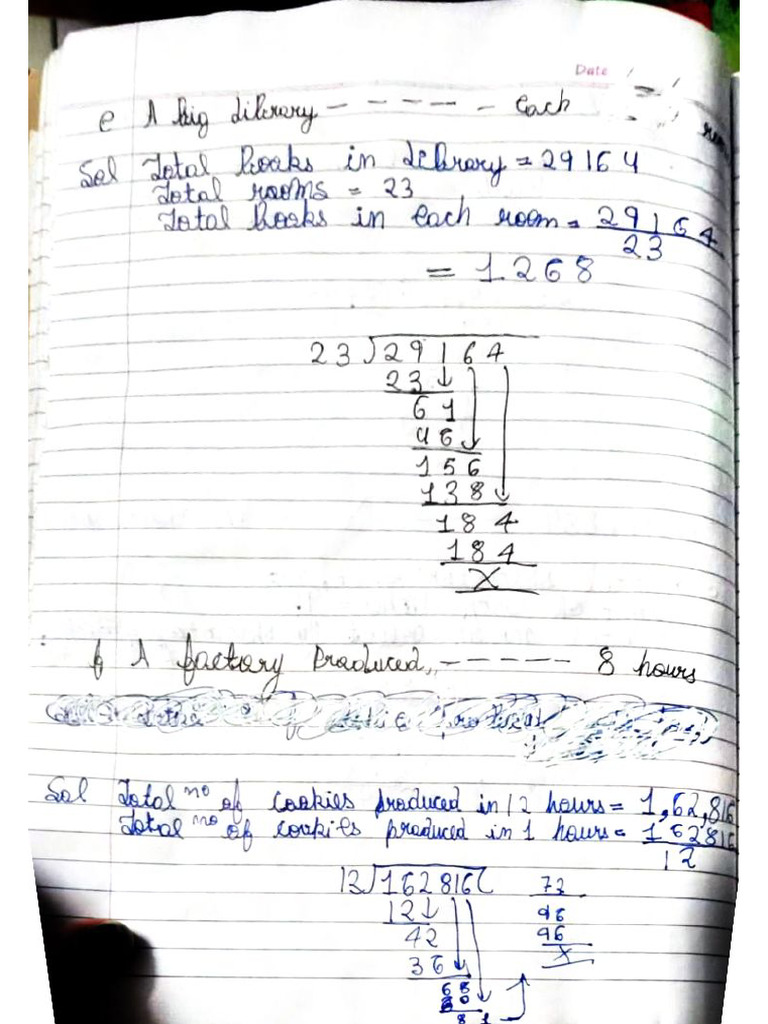 Date
e A big library - - - - - each
Sol Total books in library = 29164
Total rooms = 23
Total books in each room = 29164
23
= 1268
23)29164
23
61
46
156
138
184
184
X
f A factory Produced, - - - - - 8 hours
Sol Total no of cookies produced in 12 hours = 1,62,816
Total no of cookies produced in 1 hours = 162816
12
12)162816( 72
12 96
42 96
36 X
68
60
81